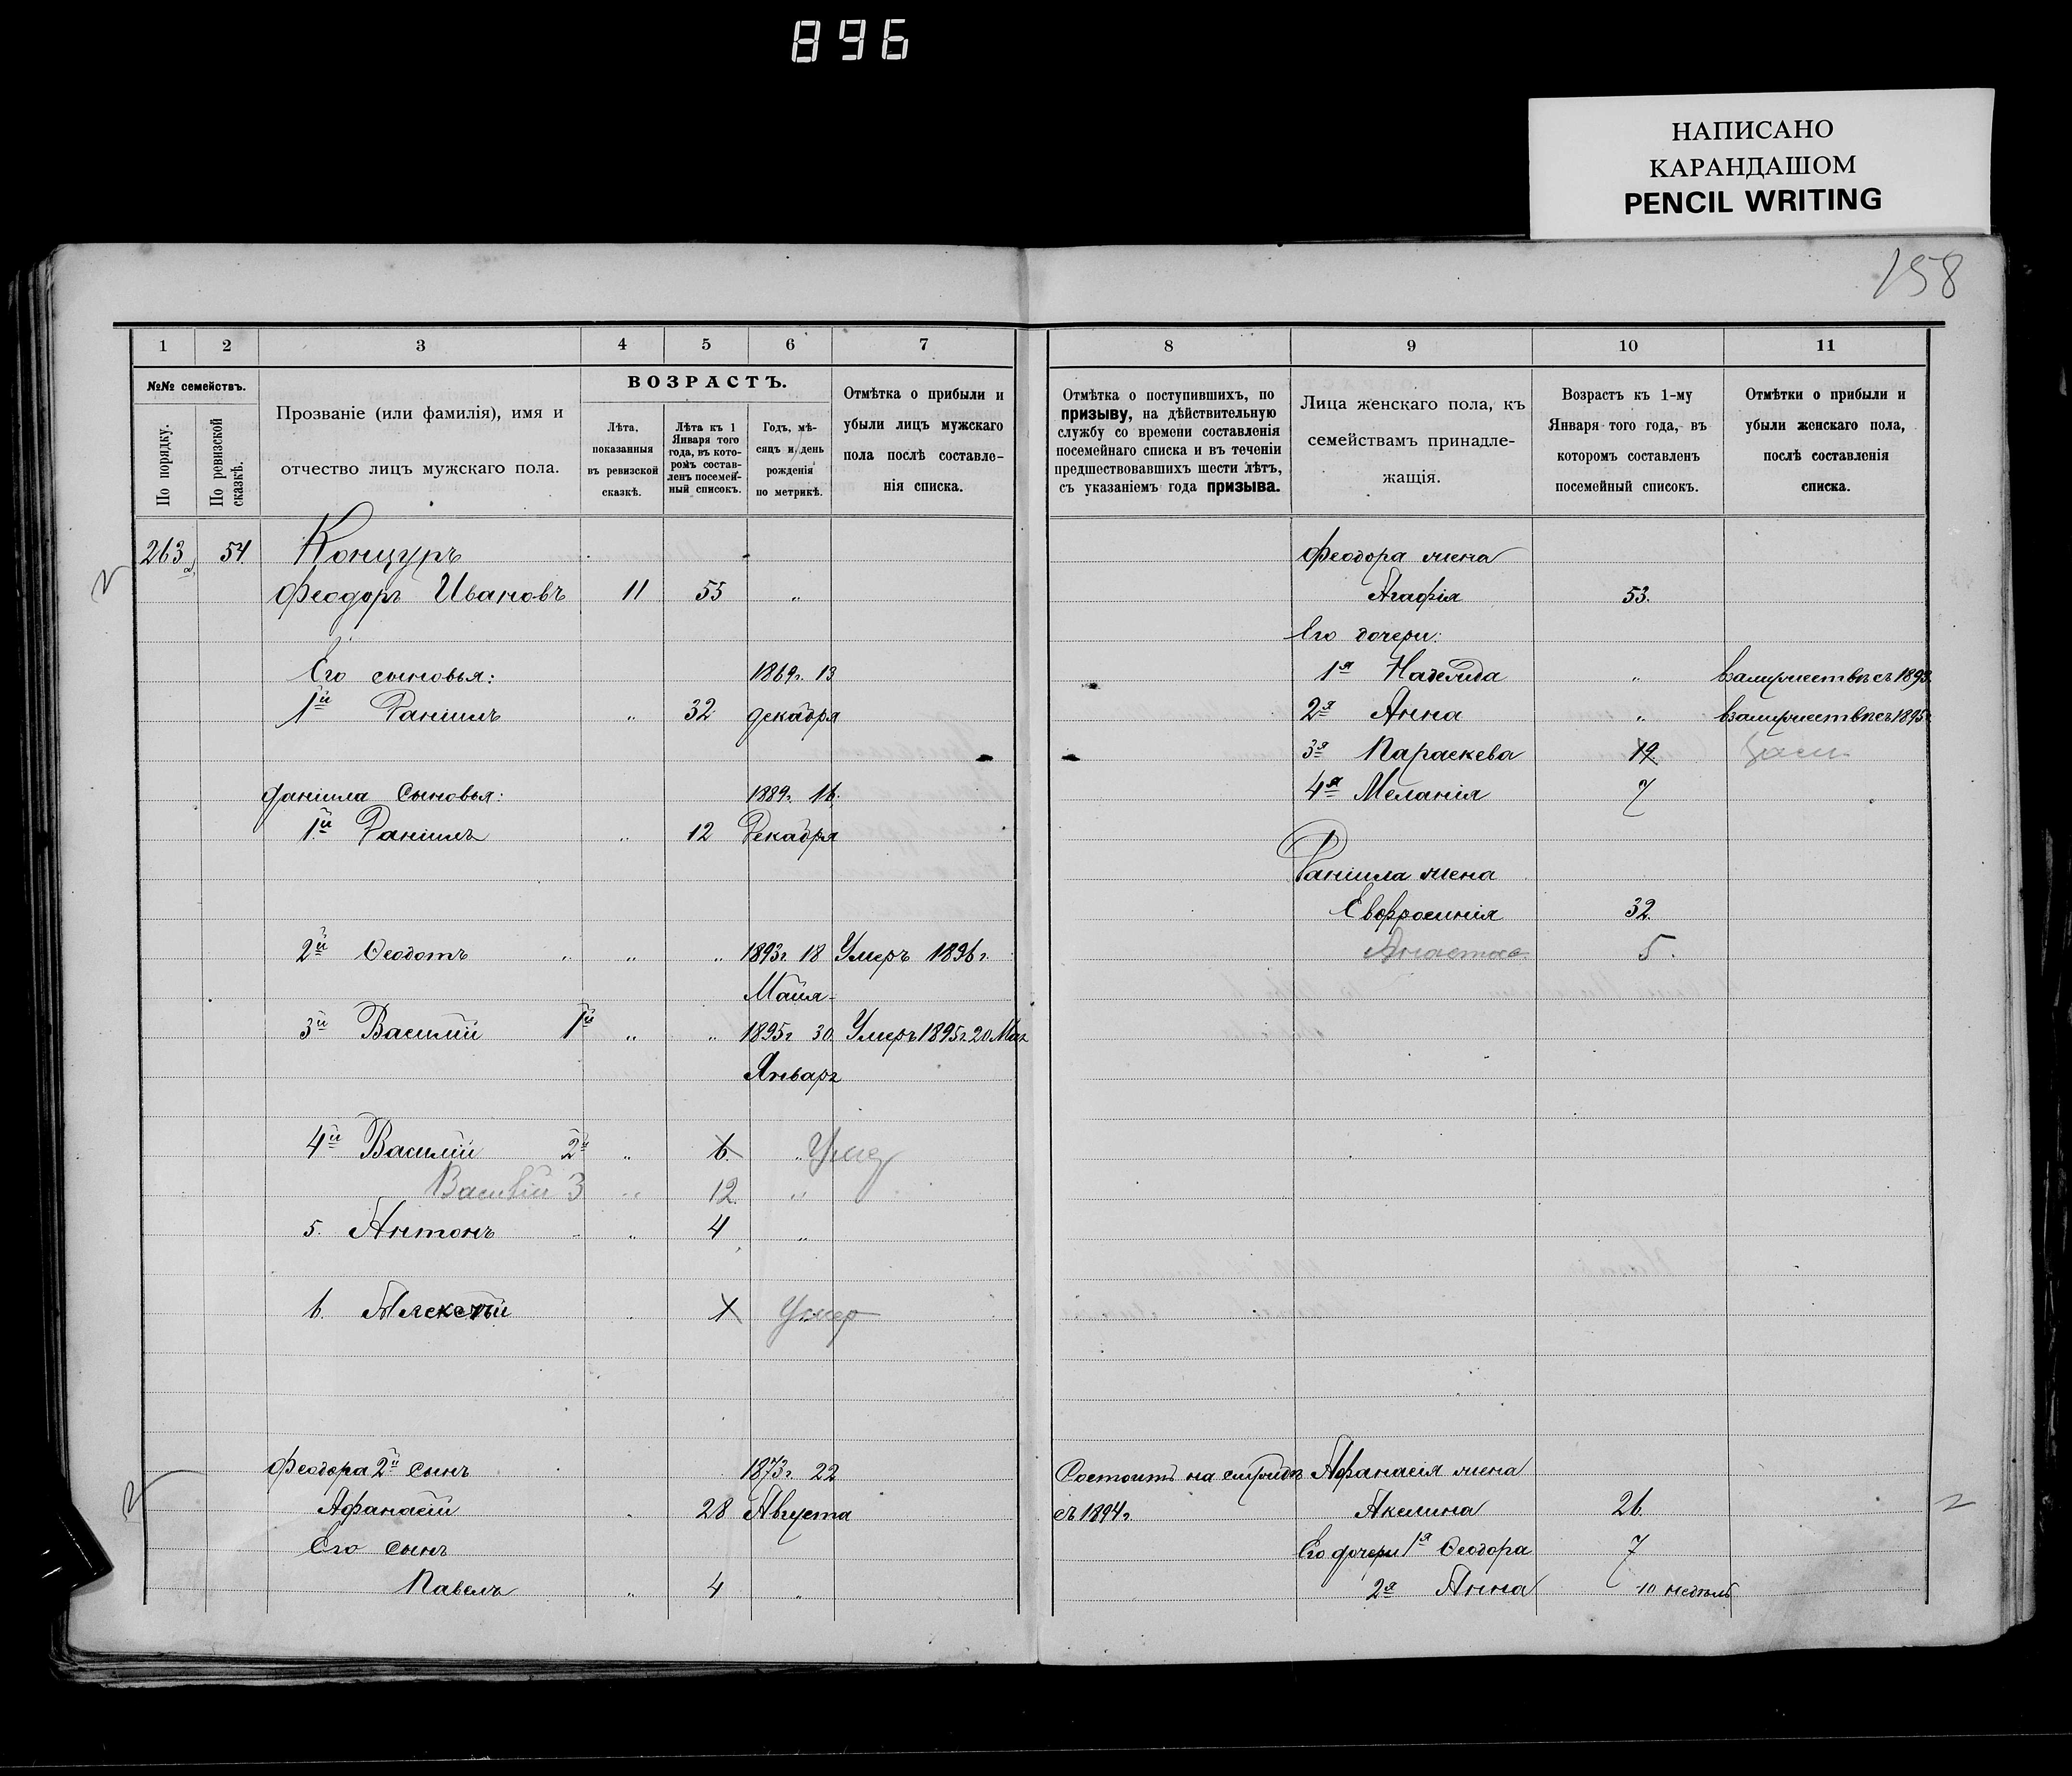 896
НАПИСАНО
КАРАНДАШОМ
PENCIL WRITING
158
1 2 3 4 5 6 7 8 9 10 11
№№ семействъ.
По порядку.
По ревизской сказкѣ.
Прозваніе (или фамилія), имя и
отчество лицъ мужскаго пола.
ВОЗРАСТЪ.
Лѣта,
показанныя
въ ревизской
сказкѣ.
Лѣта къ 1
Января того
года, въ кото-
ромъ состав-
ленъ посемей-
ный списокъ.
Годъ, мѣ-
сяцъ и день
рожденія
по метрикѣ.
Отмѣтка о прибыли и
убыли лицъ мужскаго
пола послѣ составле-
нія списка.
Отмѣтка о поступившихъ, по
призыву, на дѣйствительную
службу со времени составленія
посемейнаго списка и въ теченіи
предшествовавшихъ шести лѣтъ,
съ указаніемъ года призыва.
Лица женскаго пола, къ
семействамъ принадле-
жащія.
Возрастъ къ 1-му
Января того года, въ
которомъ составленъ
посемейный списокъ.
Отмѣтки о прибыли и
убыли женскаго пола,
послѣ составленія
списка.
263 а) 54. Концуръ Феодора жена
Феодоръ Ивановъ 11 55 „ Агафія 53.
Его дочери:
Его сыновья: 1869г. 13 1я Надежда „ взамужествѣ съ 1893.
1й Даніилъ „ 32 декабря 2я Анна „ взамужествѣ съ 1895г
3я Параскева 19.
Даніила Сыновья: 1889г. 16. 4я Меланія 7
1й Даніилъ „ 12 Декабря
Даніила жена
Евфросинія 32.
2й Ѳеодотъ „ „ „ 1893г. 18 Умеръ 1896г. Анастас 5.
Майя
3й Василій 1й „ „ 1895г 30. Умеръ 1895г. 20 Мая
Января
4й Василій 2й „ 6. „ Умер
Василій 3 „ 12. „
5. Антонъ „ 4 „
6. Алексѣй „ 1 Умер
Феодора 2й сынъ 1873г. 22 Состоитъ на службѣ Афанасія жена
Афанасій 28 Августа съ 1894г. Акелина 26.
Его сынъ Его дочери 1я Ѳеодора 7
Павелъ „ 4 „ 2я Анна 10 недѣль